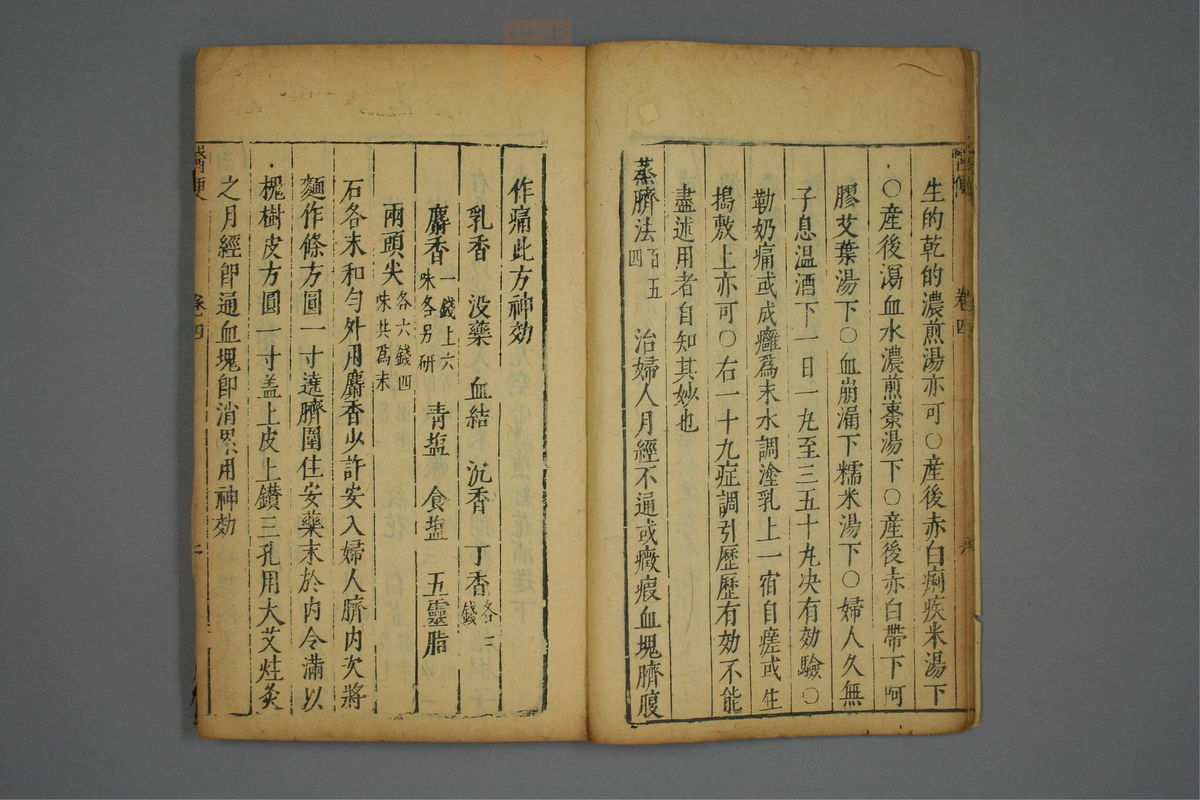 生的乾的濃煎湯亦可○產後赤白痢疾米湯下
○產後瀉血水濃煎棗湯下○產後赤白帶下阿
膠艾葉湯下○血崩漏下糯米湯下○婦人久無
子息温酒下一日一丸至三五十丸決有効驗○
勒奶痛或成癰爲末水調塗乳上一宿自瘥或生
搗敷上亦可○右一十九症調引歷歷有効不能
盡述用者自知其妙也
蒸臍法百五四 治婦人月經不通或癥瘕血塊臍腹
卷四
作痛此方神効
乳香 没藥 血結 沉香 丁香各三錢
麝香一錢上六味各另研 青塩 食塩 五靈脂
兩頭尖各六錢四味共爲末
石各末和勻外用麝香少許安入婦人臍内次將
麵作條方圓一寸遶臍圍住安藥末於内令滿以
槐樹皮方圓一寸盖上皮上鑚三孔用大艾炷灸
之月經即通血塊即消累用神効
醫便
卷四